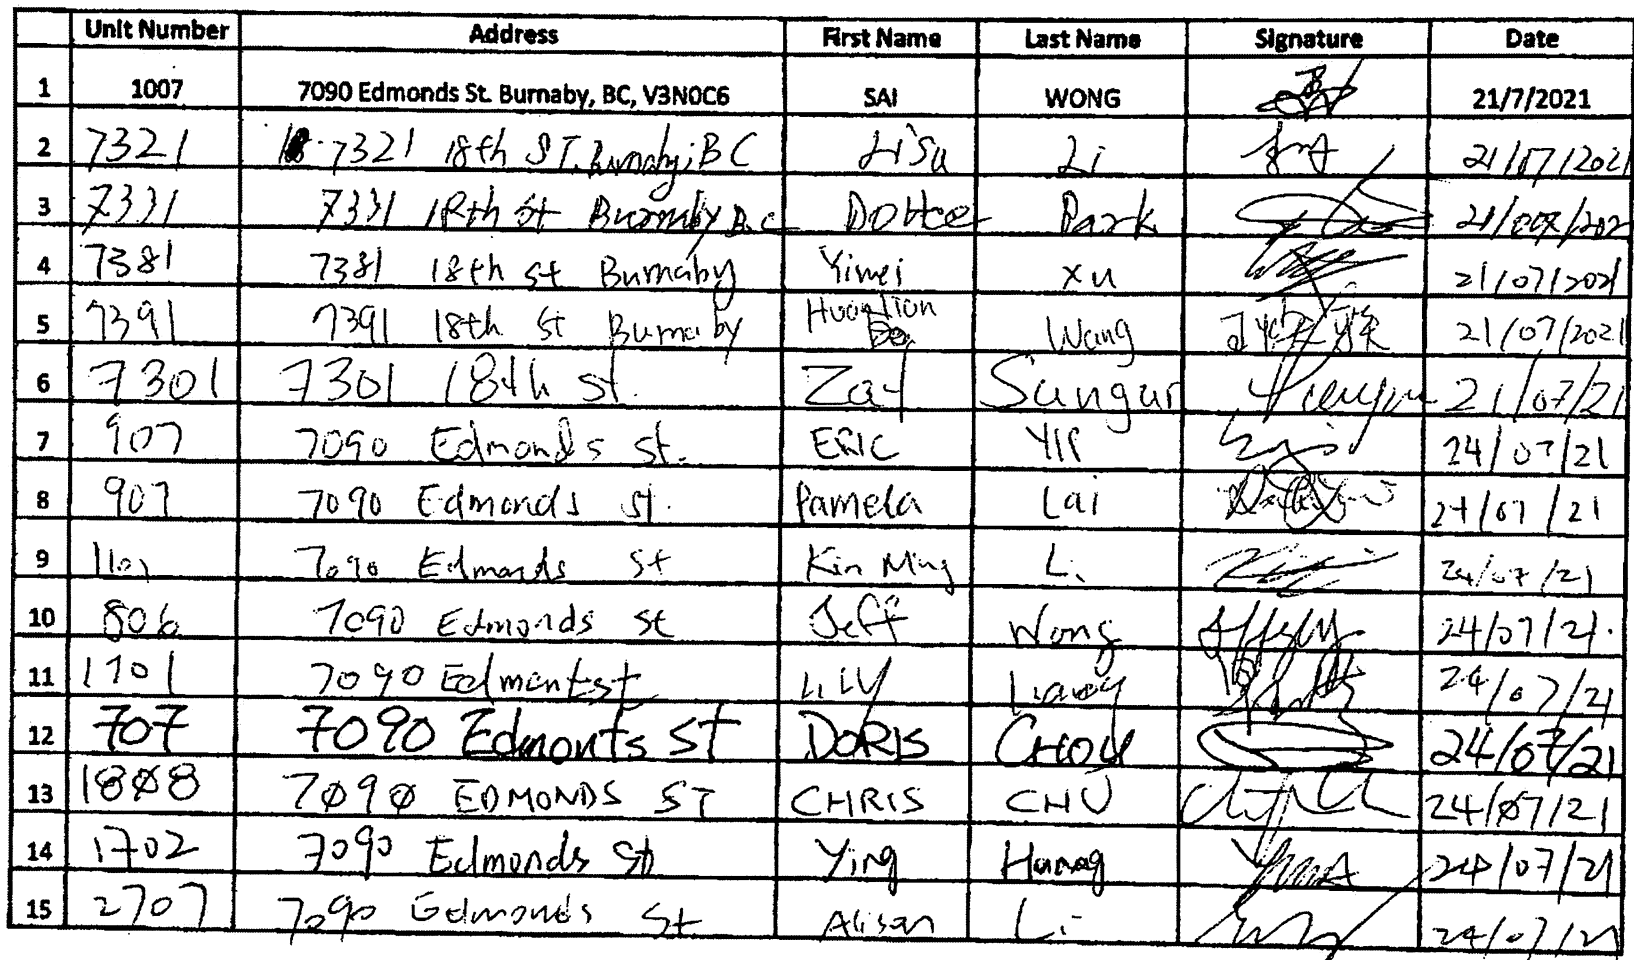 Unit Number Address First Name Last Name Signature Date
1 1007 7090 Edmonds St. Burnaby, BC, V3N0C6 SAI WONG 21/7/2021
2 7321 7321 18th ST. Burnaby, BC Lisa Li 21/07/2021
3 7331 7331 18th St Burnaby B.C Park
4 7381 7381 18th st Burnaby Yimei Xu 21/07/2021
5 7391 7391 18th St Burnaby Wang 21/07/2021
6 7301 7301 18th st. Zay Sungur 21/07/21
7 907 7090 Edmonds st. ERIC YIP 24/07/21
8 907 7090 Edmonds st. Pamela Lai 24/07/21
9 7090 Edmonds st Kin Ming Li 24/07/21
10 806 7090 Edmonds st Jeff Wong 24/07/21.
11 1701 7090 Edmont st LiLY 24/07/21
12 707 7090 Edmonts ST DORIS CHOU 24/07/21
13 1808 7090 EDMONDS ST CHRIS CHU 24/07/21
14 1702 7090 Edmonds St Ying 24/07/21
15 2707 7090 Edmonds St Alisan Li 24/07/21